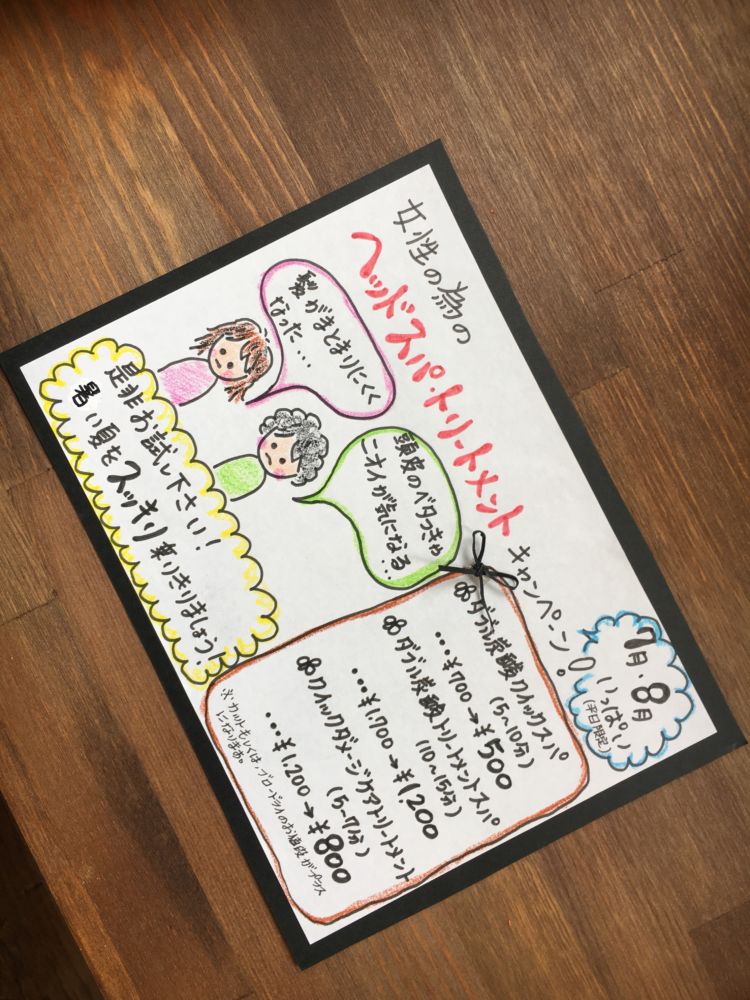 女性の為の
ヘッドスパ・トリートメント
キャンペーン!
7月・8月
いっぱい
(平日限定)
髪がまとまりにくく
なった…
頭皮のベタつきや
ニオイが気になる…
是非お試し下さい!
暑い夏をスッキリ乗りきりましょう!
ダブル炭酸クイックスパ
(5~10分)
…¥700→¥500
ダブル炭酸トリートメントスパ
(10~15分)
…¥1,700→¥1,200
クイックダメージケアトリートメント
(5~7分)
…¥1,200→¥800
※カットもしくは、ブロードライのお値段がプラス
になります。